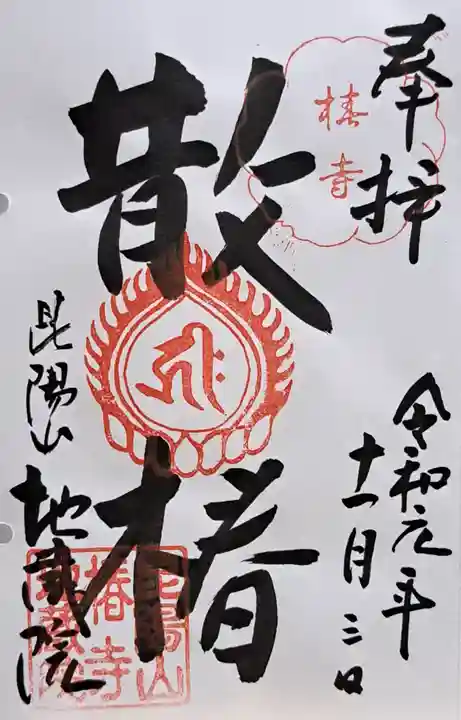 奉拝
椿寺
令和元年
十一月三日
散椿
昆陽山
地蔵院
昆陽山
椿寺
地蔵院